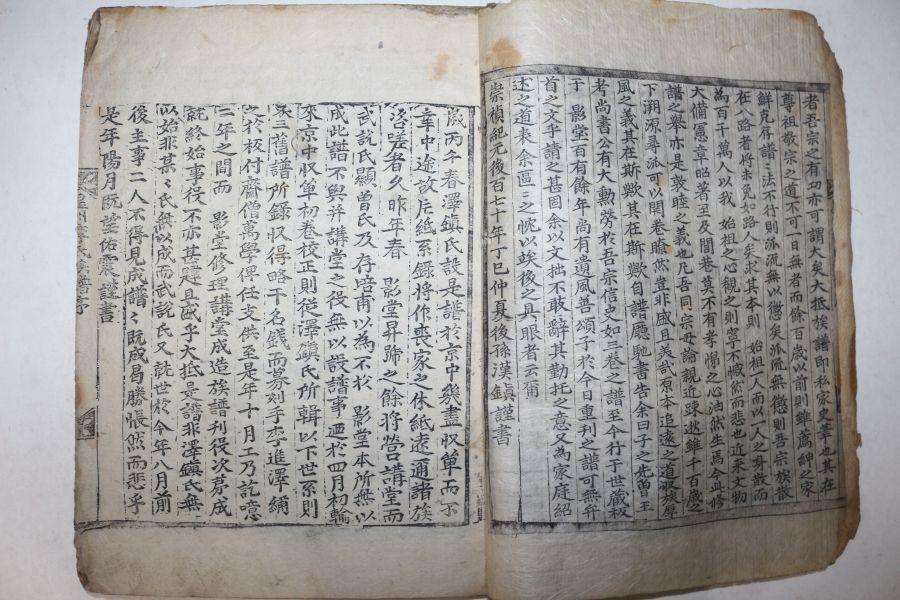 者吾宗之有功亦可謂大矣大抵族譜即私家史筆也其在
尊祖敬宗之道不可一日無者而餘百歲以前則雖薦紳之家
鮮克存譜之法不行則派流無以懲矣派流無懲則吾宗族散
在八路者將未免如路人矣求其本則 始祖一人而以一人之身散而
為百千萬人以我 始祖之心觀之則寧不慨然而悲也近來文物
大備憲章昭著至及閭巷莫不有孝悌之心油然生焉今此修
譜之舉亦是敦睦之義也凡吾同宗毋論親近疎逖雖千百歲之
下溯源尋派可以開卷瞭然豈非盛且義哉原本追遠之道収族厚
風之義其在斯歟其在斯歟自譜廳馳書告余曰子之先曾王
考尚書公有大勳勞於吾宗信史如三卷之譜至今行于世歲祓
于 影堂百有餘年尚有遺風善頌子於今日重刊之譜可無弁
首之文乎請之甚固余以文拙不敢辭其勤托之意又為家庭紹
述之道表余區之忱以竢後之具眼者云爾
崇禎紀元後百七十年丁巳仲夏後孫漢鎮謹書
歲丙午春澤鎮氏設是譜於京中幾盡収單而不
幸中途設后紙系錄將作喪家之休紙遠邇諸族
咨嗟者久昨年春 影堂昇號之餘將營講堂而
武說氏顯曾氏及存諳甫以為不於 影堂本所無以
成此譜不與并講堂之役無以設譜事迺於四月初輸
來京中収單初卷校正則從澤鎮氏所輯以下世系則
探三舊譜所錄収得略干名錢而募刻手李進澤繡
之於梓付齋僧萬學俾任支供至是年十月工乃訖噫
二年之間而 影堂修理講堂成造族譜刊役次第成
就終始事役不亦其肆且盛乎大抵是譜非澤鎮氏無
以始非某〻氏無以成而武說氏又託世於今年八月前
後主事二人不得見成譜〻既成曷勝悵然而悲乎
是年陽月既望佑震謹書